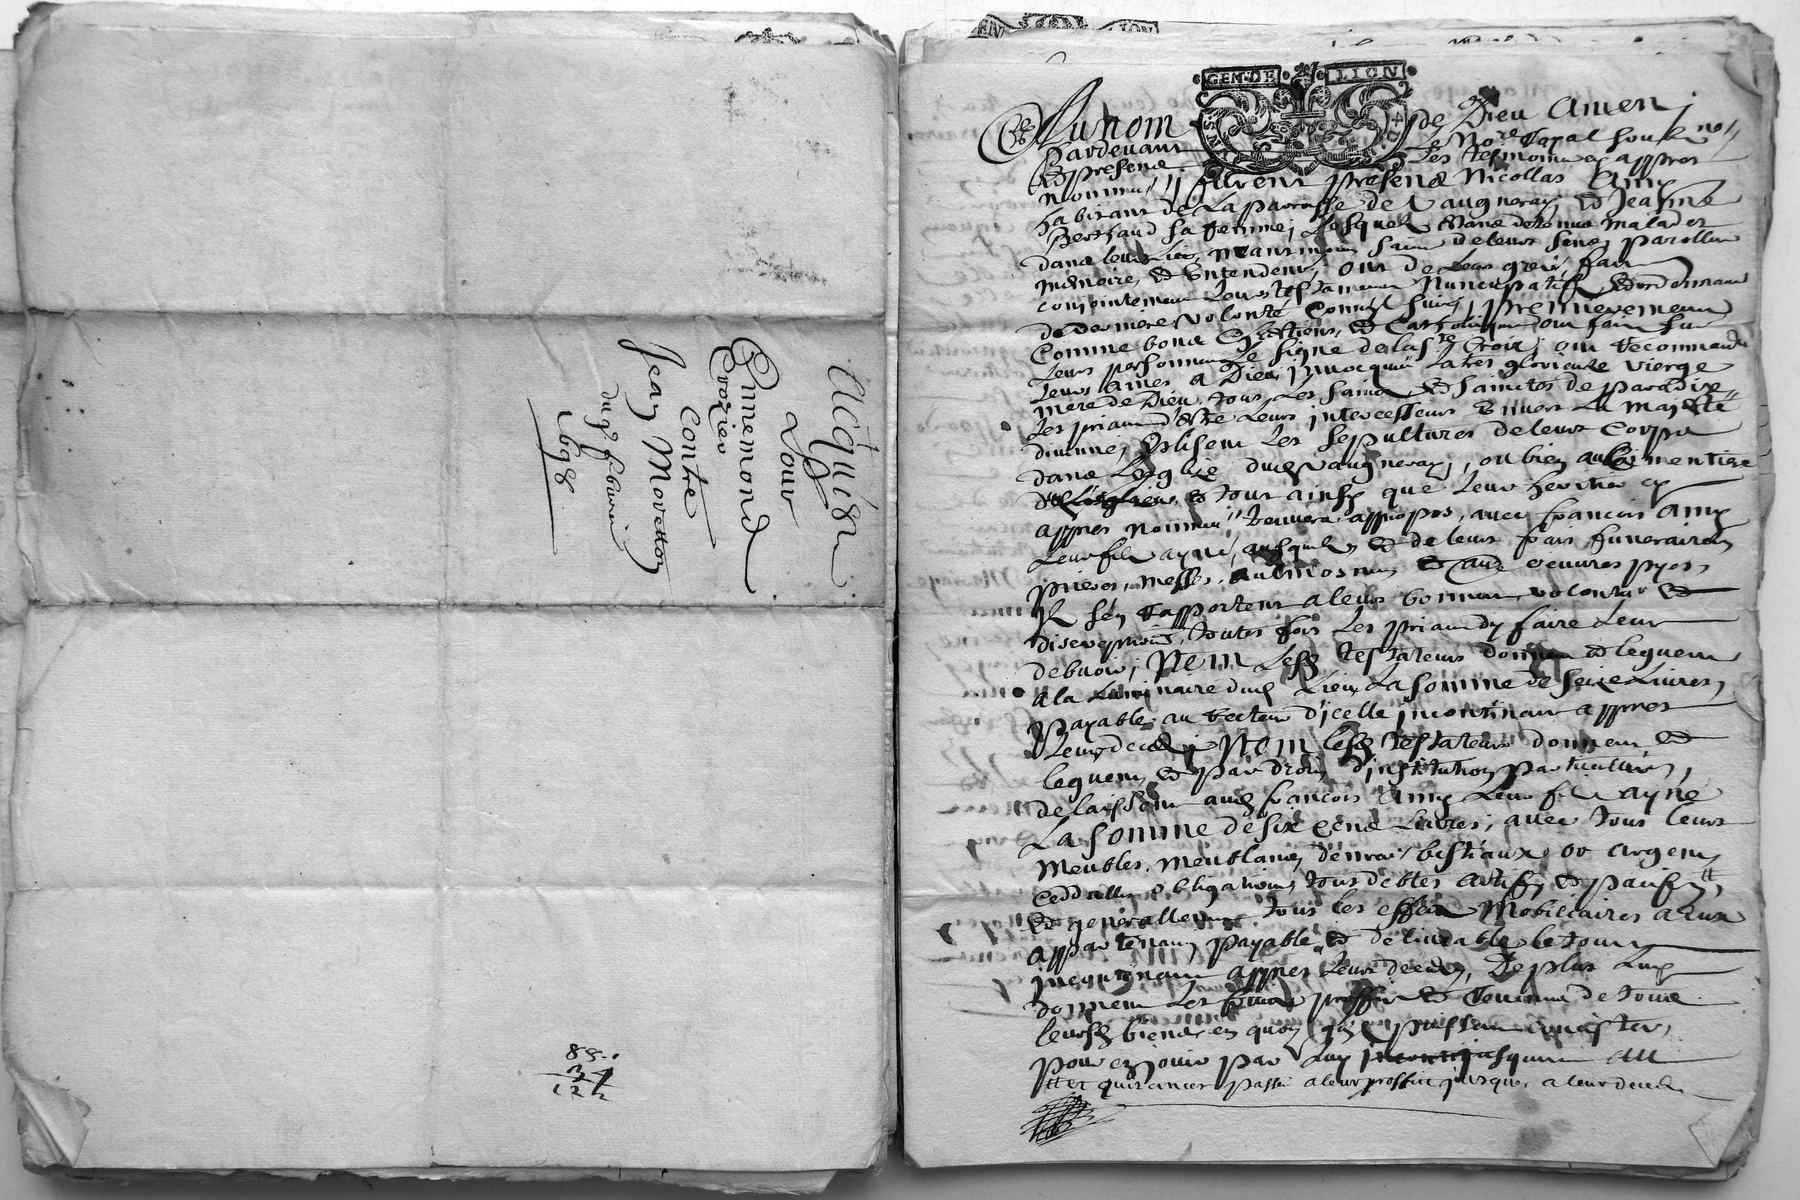 Acquisõn
Pour
Ennemond
Crozier
Contre
Jean Moretton
du 9e febvrier
1698
85
37
122
GEN·DE LION
Au nom de Dieu Amen
Pardevant le No.re Royal soub.né
& presens les tesmoins cy appres
nommes, furent presens Nicollas Amy
habitant de la parroisse de Vaugneray, & Jeanne
Berthaud sa femme, lesquels estans detenus malades
dans leur lict, neantmoins sains de leurs sens, parolles
memoires & entendent, ont de leur gré, fait
conjointement leur testament nuncupatif, & ordonnance
de derniere volonté comme suit, premierement
comme bons Chrestiens & Catholiques ont fait sur
leurs personnes le signe de la s.te Croix, ont recommandé
leurs ames a Dieu, invoqué la tres glorieuse vierge
mere de Dieu, tous les saincts & sainctes de paradix
les priant d'estre leurs intercesseurs envers la majesté
divine, Elisent les sepultures de leurs corps
dans l'esglize dud. Vaugneray, ou bien au cimentiere
et tout ainsy que leur heritier cy
appres nommé treuvera appropos, avec francois Amy
leur fils ayné, ausquels & de leurs frais funeraires
prieres, messes, aulmosnes & autres oeuvres pyes
Ils s'en rapportent a leurs bonnes volontés &
discreptions, toutes fois les priant d'y faire leur
debvoir, Item lesd. testateurs donnent & leguent
a la Luminaire dud. Lieu la somme de seize Livres,
payable au recteur d'icelle incontinant appres
leurs decedz, Item lesd. testateurs donnent &
leguent & par droit d'institution particuliere,
delaissent aud. francois Amy leur fils ayné
La somme de six cens Livres, avec tous leurs
meubles, meublants, denrées, bestiaux or argent
ceddulles obligations, tous debtes actifs & passifs
& generallement tous les effects mobiliaires a eux
appartenant payable & delivrable le tout
incontinant appres leurs decedz, De plus luy
donnent les fruits proffits & revenus de tous
leursd. biens en quoy qu'ils puissent consister,
pour en jouir par luy jusques au
et quitances passé a leur proffit jusques a leur decedz